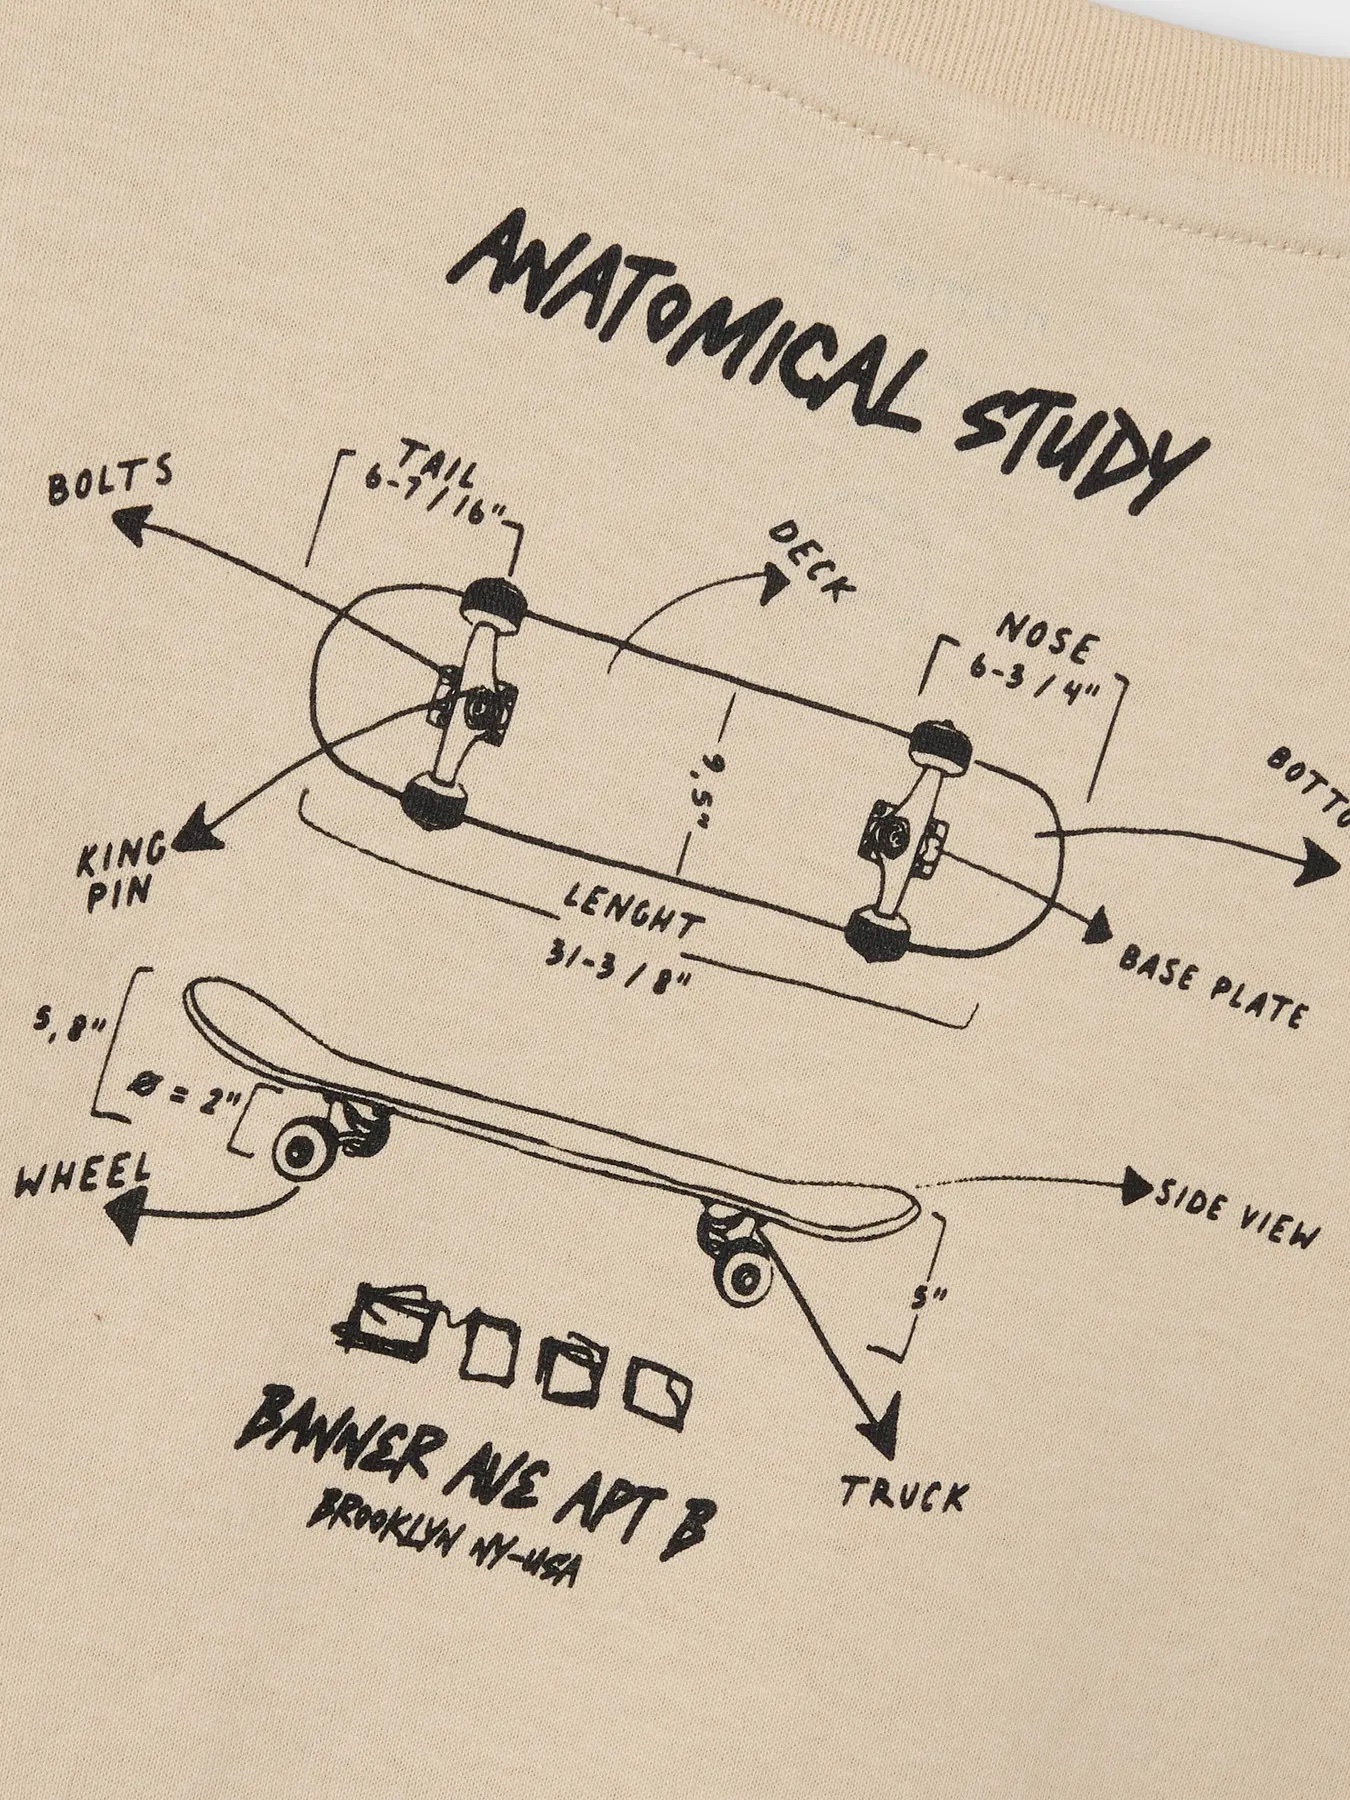 ANATOMICAL STUDY
BOLTS
TAIL
6-7/16"
DECK
NOSE
6-3/4"
BOTTO
9,5"
KING
PIN
LENGHT
31-3/8"
BASE PLATE
5,8"
Ø = 2"
WHEEL
SIDE VIEW
5"
TRUCK
BANNER AVE APT B
BROOKLYN NY-USA